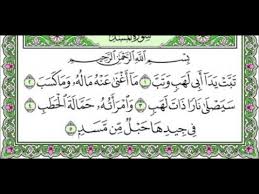 سورة المسد
بِسْمِ اللَّهِ الرَّحْمَٰنِ الرَّحِيمِ
تَبَّتْ يَدَا أَبِي لَهَبٍ وَتَبَّ ١ مَا أَغْنَىٰ عَنْهُ مَالُهُ وَمَا كَسَبَ ٢
سَيَصْلَىٰ نَارًا ذَاتَ لَهَبٍ ٣ وَامْرَأَتُهُ حَمَّالَةَ الْحَطَبِ ٤
فِي جِيدِهَا حَبْلٌ مِّن مَّسَدٍ ٥